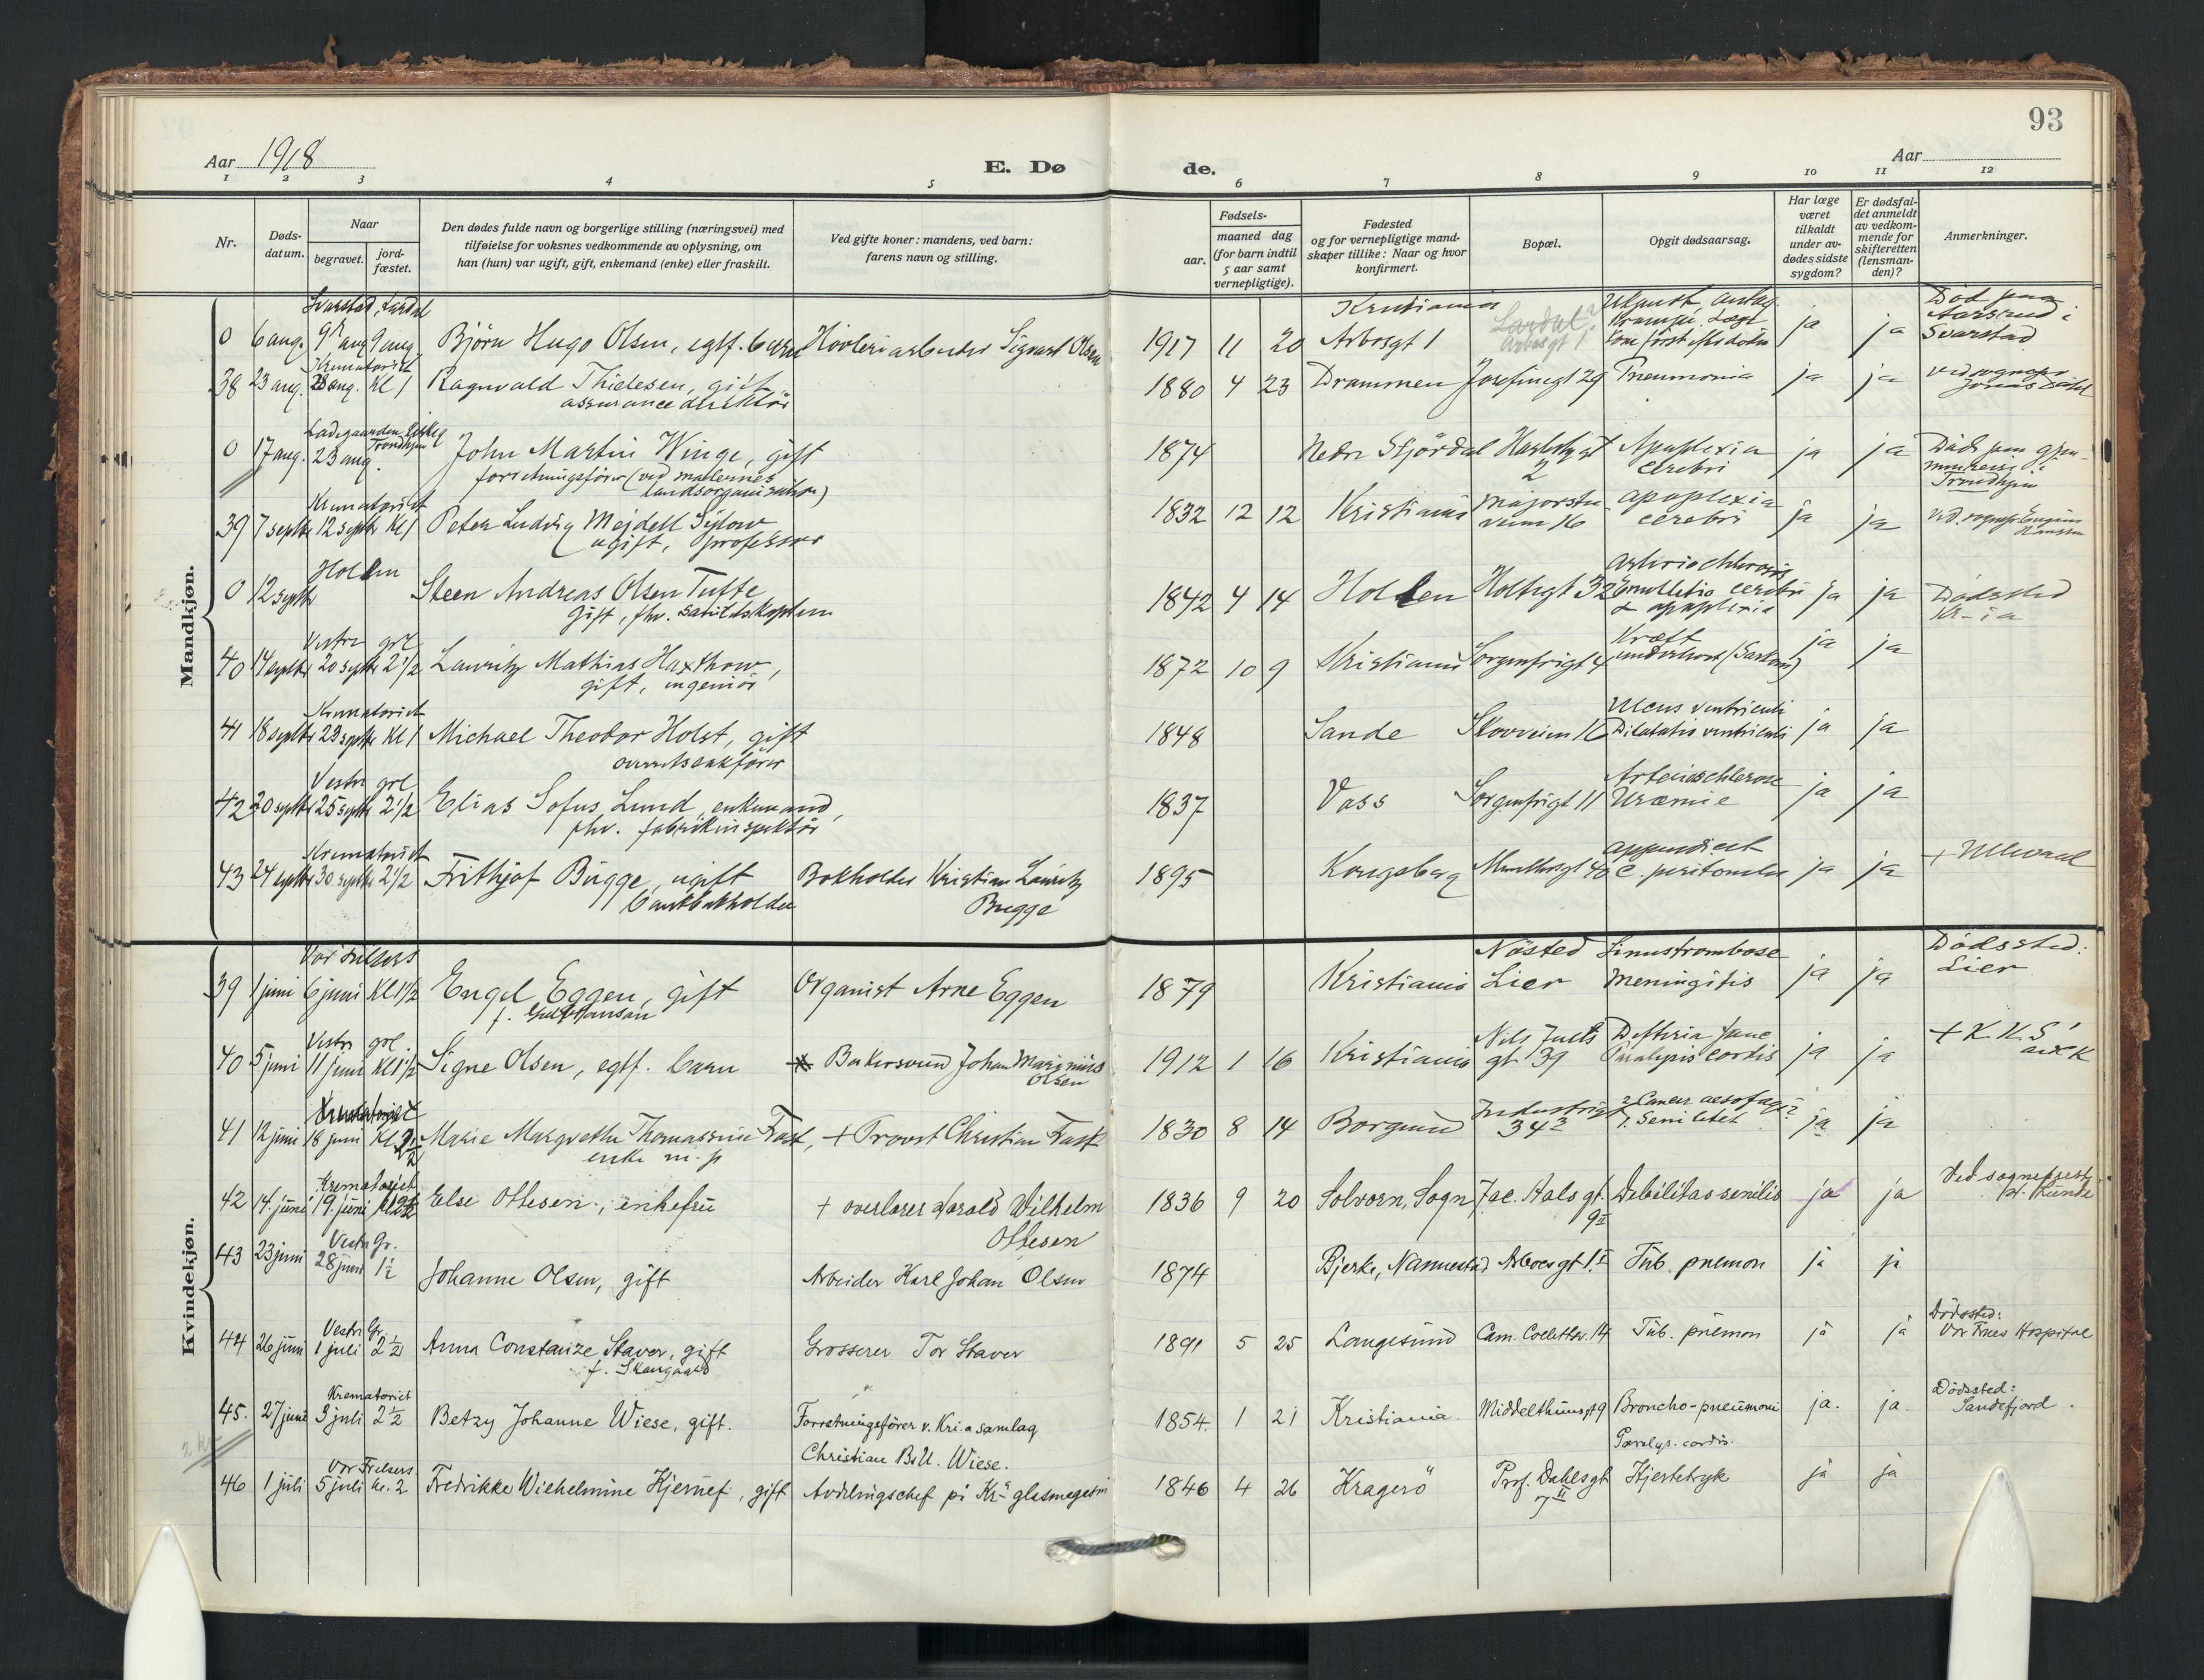 93
Aar 1918
E. Dø
de.
Aar
1 2 3 4 5 6 7 8 9 10 11 12
Nr.
Døds-
datum.
Naar
begravet.
jord-
fæstet.
Den dødes fulde navn og borgerlige stilling (næringsvei) med
tilføielse for voksnes vedkommende av oplysning, om
han (hun) var ugift, gift, enkemand (enke) eller fraskill.
Ved gifte koner: mandens, ved barn:
farens navn og stilling.
Fødsels-
aar.
maaned dag
(for barn indtil
5 aar samt
vernepligtige).
Fødested
og for vernepligtige mand-
skaper tillike: Naar og hvor
konfirmert.
Bopæl.
Opgit dødsaarsag.
Har læge
været
tilkaldt
under av-
dødes sidste
sygdom?
Er dødsfal-
det anmeldt
av vedkom-
mende for
skifteretten
(lensman-
den)?
Anmerkninger.
Mandkjøn.
Svarstad, Lardal Kristiania Død paa
0 6 aug. 9 aug 9 aug Bjørn Hugo Olsen, egtf. barn Høvleriarbeider Sigvart Olsen 1917 11 20 Arbosgt 1 Lardal kom først efter døden ja ja Svarstad
Krematoriet
38 23 aug. 28 aug. Kl 1 Ragnvald Thielesen, gift 1880 4 23 Drammen Josefinegt 29 Pneumonia ja ja ved sognepr
assurancedirektör
Ladegaarden Trondhjem
0 17 aug. 23 aug. John Martin Winge, gift 1874 Nedre Stjördal 2 Apoplexia cerebri ja ja
forretningsförer (ved malernes
landsorganisation) Trondhjem
Krematoriet
39 7 septbr 12 septbr Kl 1 Peter Ludvig Mejdell Sylow 1832 12 12 Kristiania Majorstu- apoplexia ja ja
ugift, professor veien 16 cerebri
Holden
0 12 septbr Steen Andreas Olsen Tufte 1842 4 14 Holden Holtegt 32 Emollitio cerebri ja ja Dødssted
gift, fhv. & apoplexia Kr-ia
Vestre grl
40 14 septbr 20 septbr 2 1/2 Lauritz Mathias Haxthow, 1872 10 9 Kristiania Sorgenfrigt 4 Kræft ja ja
gift, ingeniör
Krematoriet Ulcus ventriculi
41 18 septbr 23 septbr Kl 1 Michael Theodor Holst, gift 1848 Sande Skovveien 16 Dilatatio ventriculi ja ja
overretssakförer
Vestre grl
42 20 septbr 25 septbr 2 1/2 Elias Sofus Lund, enkemand, 1837 Voss Sorgenfrigt 11 Uræmie ja ja
fhv. fabrikinspektör
Krematoriet
43 24 septbr 30 septbr 2 1/2 Frithjof Bugge, ugift Bokholder Kristian Lauritz 1895 Kongsberg Munthesgt 40 ja ja + Ullevaal
bankbokholder Bugge
Kvindekjøn.
Vor Frelsers Nösted Sinustrombose Dödssted:
39 1 juni 6 juni Kl 1 1/2 Engel Eggen, gift Organist Arne Eggen 1879 Kristiania Lier Meningitis ja ja Lier
Vestre grl. Nils Juels Difteria
40 5 juni 11 juni Kl 1 1/2 Signe Olsen, egtf. barn Bakersvend Johan Marinius 1912 1 16 Kristiania gt 39 Paralysis cordis ja ja + K.K.S.
Olsen
Krematoriet Industrigt 2 Cancer aesofagi?
41 12 juni 18 juni Marie Margrethe Thomassine Fast, + Provst Christian Fast 1830 8 14 Borgund 34 1. Senilitet ja ja
enke m. p
Krematoriet
42 14. juni 19. juni Else Ottesen, enkefru + overlærer Harald Wilhelm 1836 9 20 Solvorn, Sogn Jac. Aals gt. Debilitas senilis ja ja Ved sogneprest
Ottesen 9 II
Vestre Gr.
43 23 juni 28 juni 1 1/2 Johanne Olsen, gift Arbeider Karl Johan Olsen 1874 Bjerke, Nannestad Arboesgt 1 I Tub. pnemon ja ja
Vestre Gr. Dödssted:
44 26 juni 1 juli 2 1/2 Anna Constanze Staver, gift Grosserer Tor Staver 1891 5 25 Langesund Cam. Collettsv. 14 Tub. pnemon ja ja Vor Frues Hospital
Krematoriet Dödssted:
45. 27 juni 3 juli 2 1/2 Betzy Johanne Wiese, gift. Forretningsförer v. Kri.a samlag 1854. 1 21 Kristiania Middelthunsgt 9 Broncho-pneumoni ja. ja. Sandefjord.
Christian B.U. Wiese. Paralys. cordis.
Vor Frelsers
46 1 juli 5 juli kl. 2 Fredrikke Wilhelmine Hjernef, gift Avdelingschef på Kr.a glasmagasin 1846 4 26 Kragerö Prof. Dahlsgt Hjertetryk ja ja
7 II